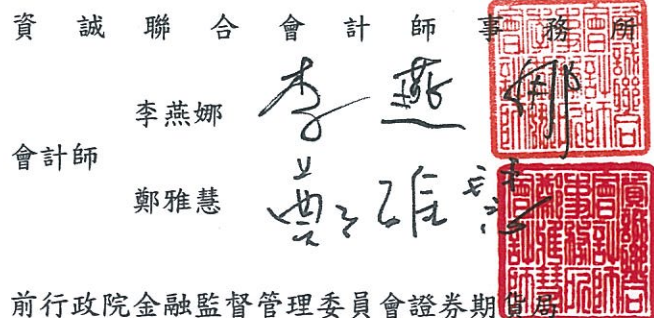 資誠聯合會計師事務所
李燕娜 李燕娜
會計師
鄭雅慧 鄭雅慧
前行政院金融監督管理委員會證券期貨局